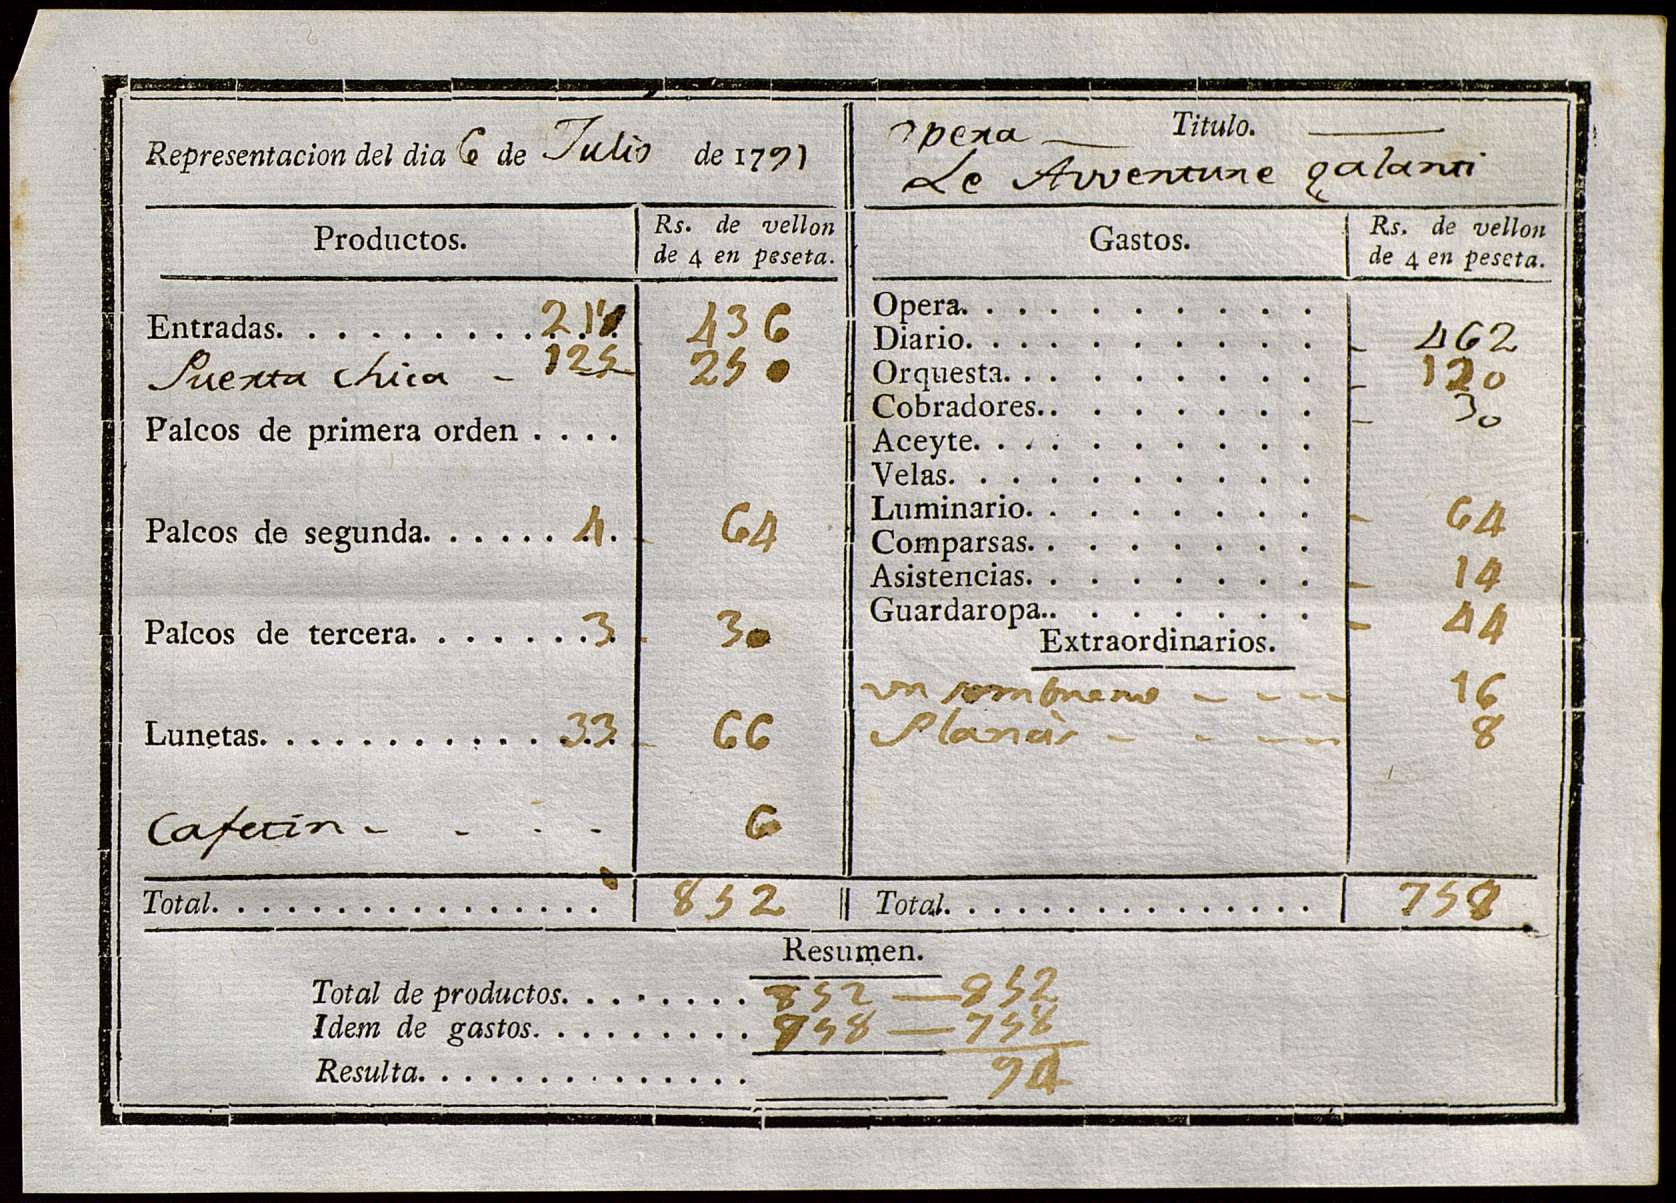 Representacion del dia 6 de Julio de 1791
Opera Titulo.
Le Avventure galanti
Productos. Rs. de vellon de 4 en peseta.
Gastos. Rs. de vellon de 4 en peseta.
Entradas. 218 436
Puerta chica - 125 250
Palcos de primera orden
Palcos de segunda. 4 64
Palcos de tercera. 3 30
Lunetas. 33 66
Cafetin 6
Total. 852
Opera.
Diario. 462
Orquesta. 120
Cobradores. 30
Aceyte.
Velas.
Luminario. 64
Comparsas.
Asistencias. 14
Guardaropa. 44
Extraordinarios.
un sombrero 16
8
Total. 758
Resumen.
Total de productos. 852 — 852
Idem de gastos. 758 — 758
Resulta. 94